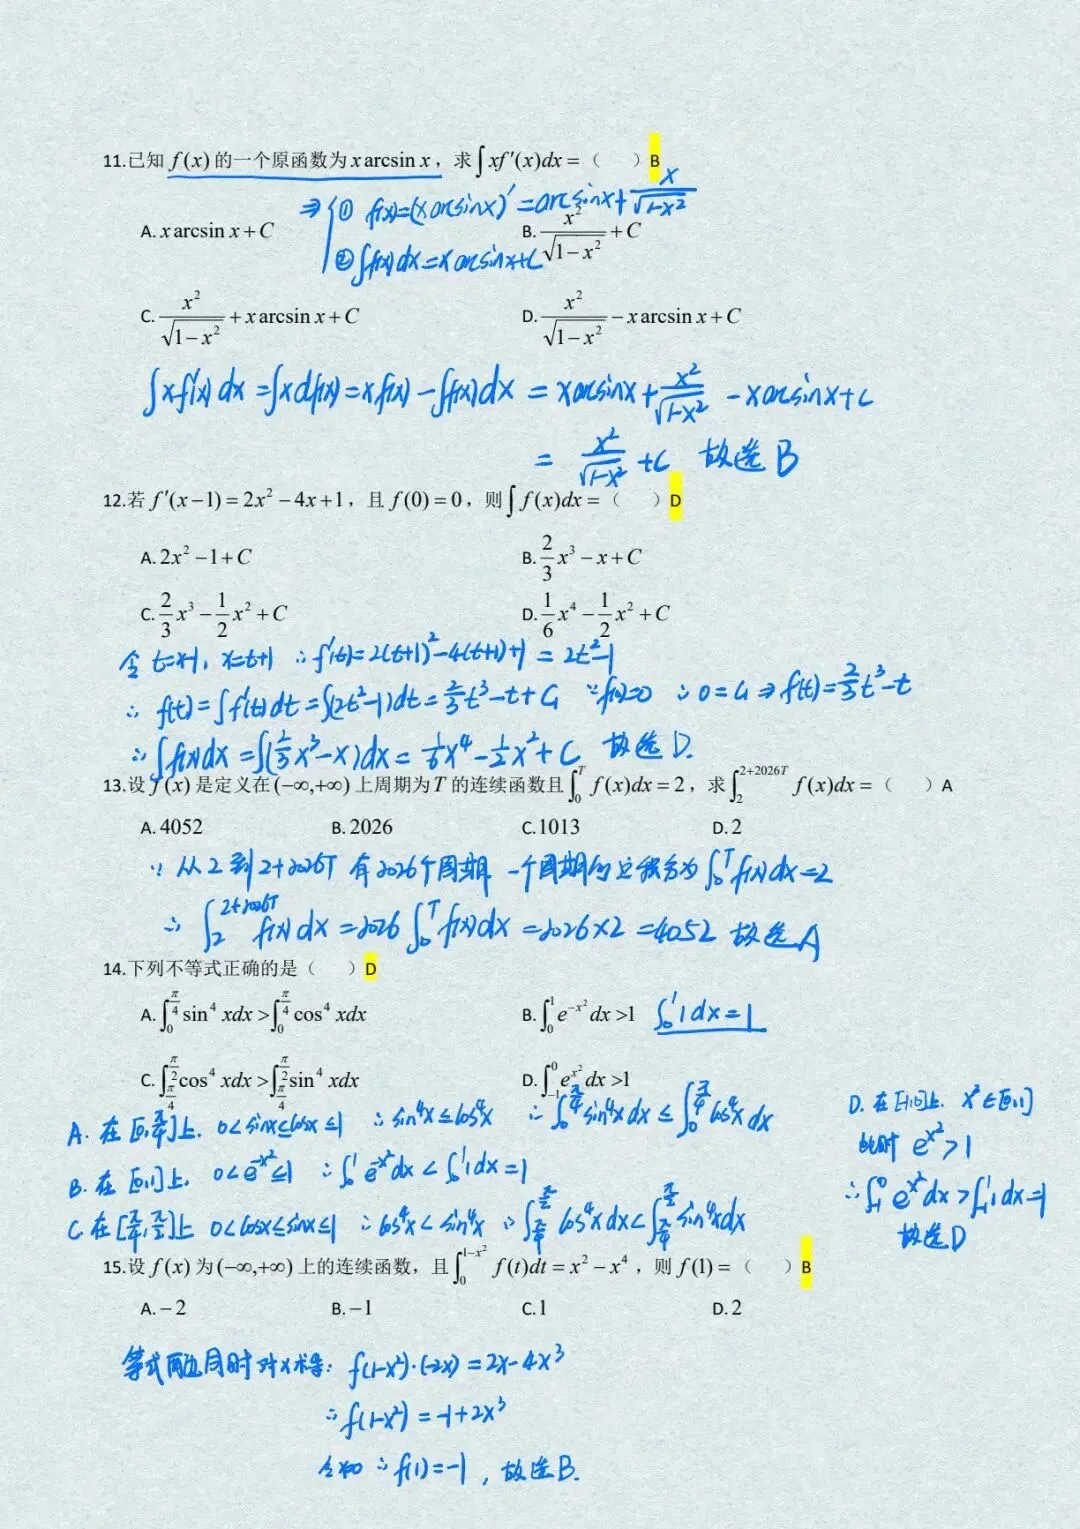 11.已知 f(x) 的一个原函数为 x arcsin x，求∫xf′(x)dx =（　　）B
⇒ ① f(x)=(x arcsinx)′=arcsinx+x/√(1-x²)
A. x arcsin x + C　B. x²/√(1−x²) + C
② ∫f(x)dx=x arcsinx+C
C. x²/√(1−x²) + x arcsin x + C　D. x²/√(1−x²) − x arcsin x + C
∫xf′(x)dx=∫xdf(x)=xf(x)-∫f(x)dx = xarcsinx+x²/√(1-x²) -xarcsinx+C
= x²/√(1-x²) +C 故选B
12.若 f′(x−1) = 2x² − 4x +1，且 f(0) = 0，则∫f(x)dx =（　　）D
A. 2x² −1+C　B. 2/3 x³ − x + C
C. 2/3 x³ − 1/2 x² + C　D. 1/6 x⁴ − 1/2 x² + C
令t=x-1, x=t+1 ∴f′(t)=2(t+1)²-4(t+1)+1 = 2t²-1
∴ f(t)=∫f′(t)dt=∫(2t²-1)dt=2/3 t³-t+C₁ ∵f(0)=0 ∴0=C₁⇒f(t)=2/3 t³-t
∴∫f(x)dx=∫(2/3 x³-x)dx=1/6 x⁴-1/2 x²+C 故选D.
13.设 f(x) 是定义在 (−∞,+∞) 上周期为T 的连续函数且∫₀ᵀ f(x)dx = 2，求∫₂^(2+2026T) f(x)dx =（　　）A
A. 4052　B. 2026　C. 1013　D. 2
∵从2到2+2026T 有2026个周期 一个周期的定积分为∫₀ᵀf(x)dx=2
∴∫₂^(2+2026T) f(x)dx=2026∫₀ᵀf(x)dx=2026×2=4052 故选A
14.下列不等式正确的是（　　）D
A. ∫₀^(π/4) sin⁴ xdx >∫₀^(π/4) cos⁴ xdx　B. ∫₀¹ e^(−x²) dx >1　∫₀¹1dx=1
C. ∫_(π/4)^(π/2) cos⁴ xdx >∫_(π/4)^(π/2) sin⁴ xdx　D. ∫₋₁⁰ e^(x²) dx >1
A. 在[0,π/4]上. 0<sinx≤cosx≤1 ∴sin⁴x≤cos⁴x ∴∫₀^(π/4) sin⁴xdx≤∫₀^(π/4) cos⁴xdx
B. 在[0,1]上. 0<e^(-x²)≤1 ∴∫₀¹e^(-x²)dx<∫₀¹1dx=1
C. 在[π/4,π/2]上 0<cosx≤sinx≤1 ∴cos⁴x<sin⁴x ∴∫_(π/4)^(π/2) cos⁴xdx<∫_(π/4)^(π/2) sin⁴xdx
D. 在[-1,0]上. x²∈[0,1]
此时 e^(x²)>1
∴∫₋₁⁰e^(x²)dx>∫₋₁1dx=1
故选D
15.设 f(x) 为 (−∞,+∞) 上的连续函数，且∫₀^(1−x²) f(t)dt = x² − x⁴，则 f(1) =（　　）B
A. −2　B. −1　C. 1　D. 2
等式两边同时对x求导: f(1-x²)·(-2x)=2x-4x³
∴f(1-x²)=-1+2x³
令x=0 ∴f(1)=-1, 故选B.